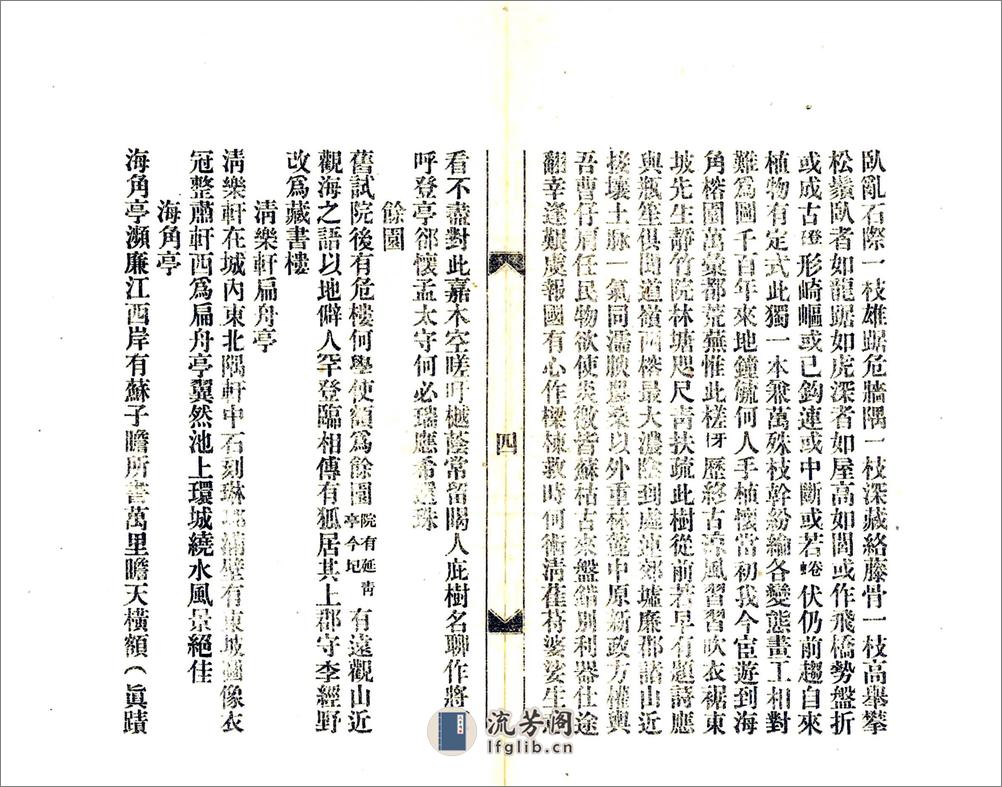 臥亂石際一枝雄踞危牆隅一枝深藏絡藤骨一枝高舉攀
松巔臥者如龍踞如虎深者如屋高如閭或作飛橋勢盤折
或成古磴形崎嶇或已鉤連或中斷或若蜷伏仍前趨自來
植物有定式此獨一本兼萬殊枝幹紛綸各變態畫工相對
難爲圖千百年來地鐘毓何人手植懷當初我今宦遊到海
角榕園萬彙都荒蕪惟此槎牙歷終古涼風習習吹衣裾東
坡先生靜竹院林塘咫尺青扶疏此樹從前若早有題詩應
與瓶笙俱聞道嶺西榕最大濃陰到處連郊墟廉郡諸山近
接壤土脉一氣同濡腴農桑以外重林簏中原新政方權輿
吾曹仔肩任民物欲使炎徼皆蘇枯古來盤錯別利器仕途
翻幸逢艱虞報國有心作樑棟救時何術清萑苻婆娑生
四
看不盡對此嘉木空嗟吁樾蔭常留暍人庇樹名聊作將
呼登亭郤懷孟太守何必瑞應希還珠
餘園
舊試院後有危樓何學使額爲餘園院有延青亭今圮有遠觀山近
觀海之語以地僻人罕登臨相傳有狐居其上郡守李經野
改爲藏書樓
清樂軒扁舟亭
清樂軒在城內東北隅軒中石刻琳瑯滿壁有東坡圖像衣
冠整肅軒西爲扁舟亭翼然池上環城繞水風景絕佳
海角亭
海角亭瀕廉江西岸有蘇子瞻所書萬里瞻天橫額（眞蹟
流芳阁
lfglib.cn